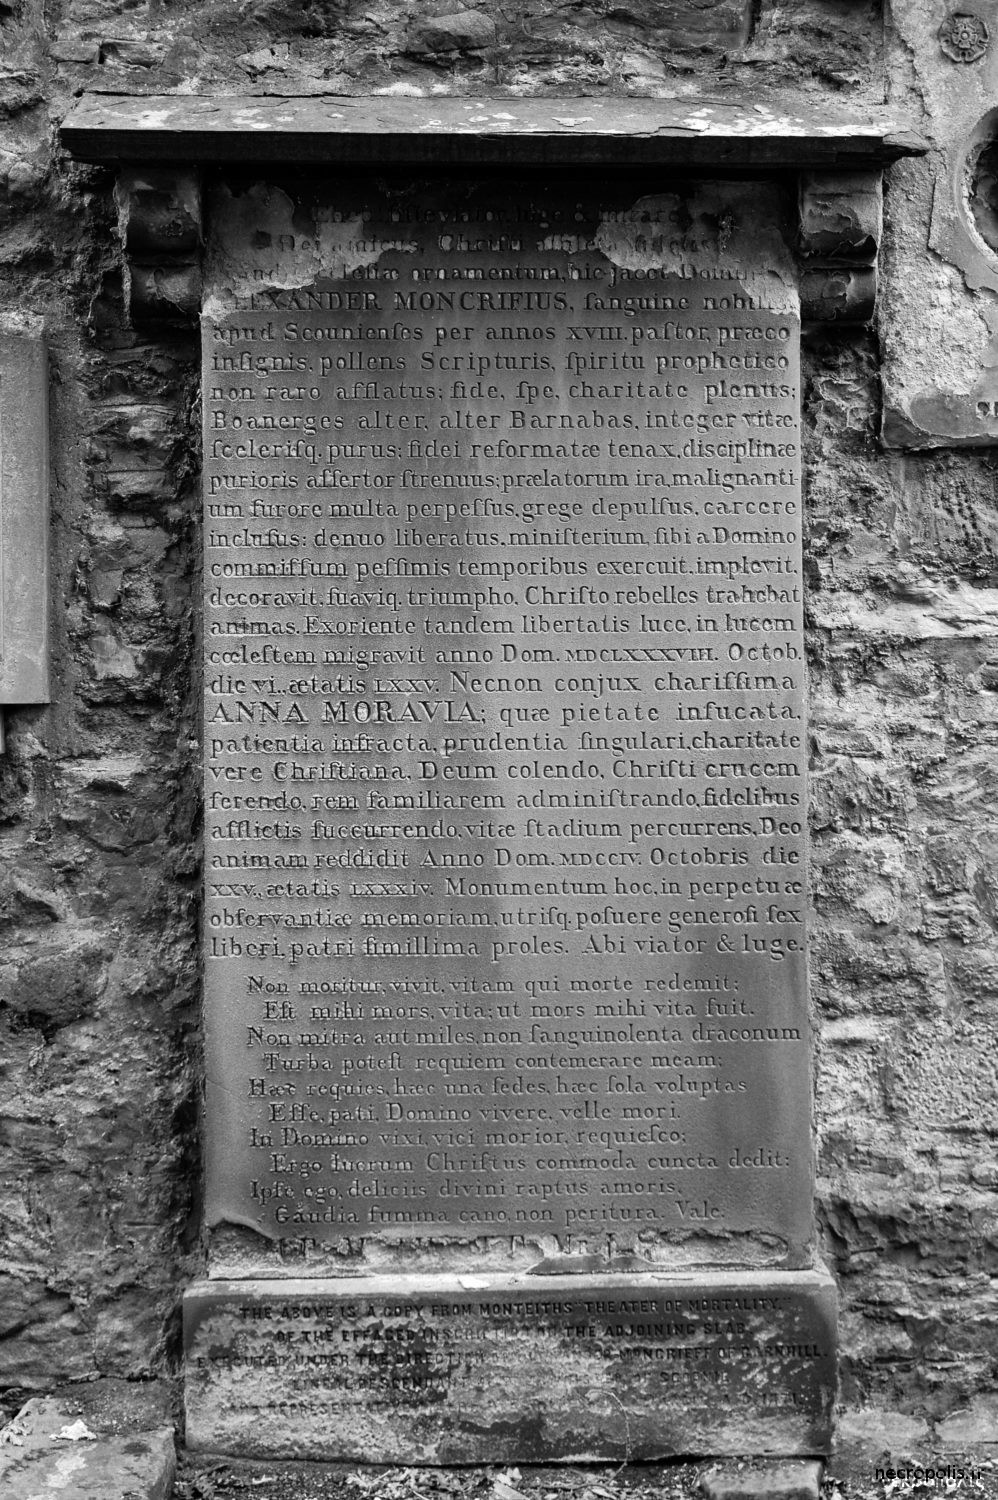 luge &
amicus,
ornamentum, hic jacet
ALEXANDER MONCRIFIUS, ſanguine nobilis,
apud Scounienſes per annos XVIII. paſtor, præco
inſignis, pollens Scripturis, ſpiritu prophetico
non raro afflatus; fide, ſpe, charitate plenus;
Boanerges alter, alter Barnabas, integer vitæ,
ſceleriſq. purus: fidei reformatæ tenax, diſciplinæ
purioris aſſertor ſtrenuus; prælatorum ira, malignanti-
um furore multa perpeſſus, grege depulſus, carcere
incluſus: denuo liberatus, miniſterium, ſibi a Domino
commiſſum peſſimis temporibus exercuit, implevit,
decoravit, ſuaviq. triumpho, Chriſto rebelles trahebat
animas. Exoriente tandem libertatis luce, in lucem
cœleſtem migravit anno Dom. MDCLXXXVIII. Octob.
die VI., ætatis LXXV. Necnon conjux chariſſima
ANNA MORAVIA; quæ pietate infucata,
patientia infracta, prudentia ſingulari, charitate
vere Chriſtiana, Deum colendo, Chriſti crucem
ferendo, rem familiarem adminiſtrando, fidelibus
afflictis ſuccurrendo, vitæ ſtadium percurrens, Deo
animam reddidit Anno Dom. MDCCIV. Octobris die
XXV., ætatis LXXXIV. Monumentum hoc, in perpetuæ
obſervantiæ memoriam, utriſq. poſuere generoſi ſex
liberi, patri ſimillima proles. Abi viator & luge.
Non moritur, vivit, vitam qui morte redemit;
Eſt mihi mors, vita; ut mors mihi vita fuit.
Non mitra aut miles, non ſanguinolenta draconum
Turba poteſt requiem contemerare meam;
Hæc requies, hæc una ſedes, hæc ſola voluptas
Eſſe, pati, Domino vivere, velle mori.
In Domino vixi, vici morior, requieſco;
Ergo lucrum Chriſtus commoda cuncta dedit:
Ipſe ego, deliciis divini raptus amoris,
Gaudia ſumma cano, non peritura. Vale.
THE ABOVE IS A COPY FROM MONTEITHS "THEATER OF MORTALITY,"
OF THE EFFACED INSCRIPTION ON THE ADJOINING SLAB.
EXECUTED UNDER THE DIRECTION OF MONCRIEFF OF BARNHILL.
LINEAL DESCENDANT OF
REPRESENTATIVE
necropolis.